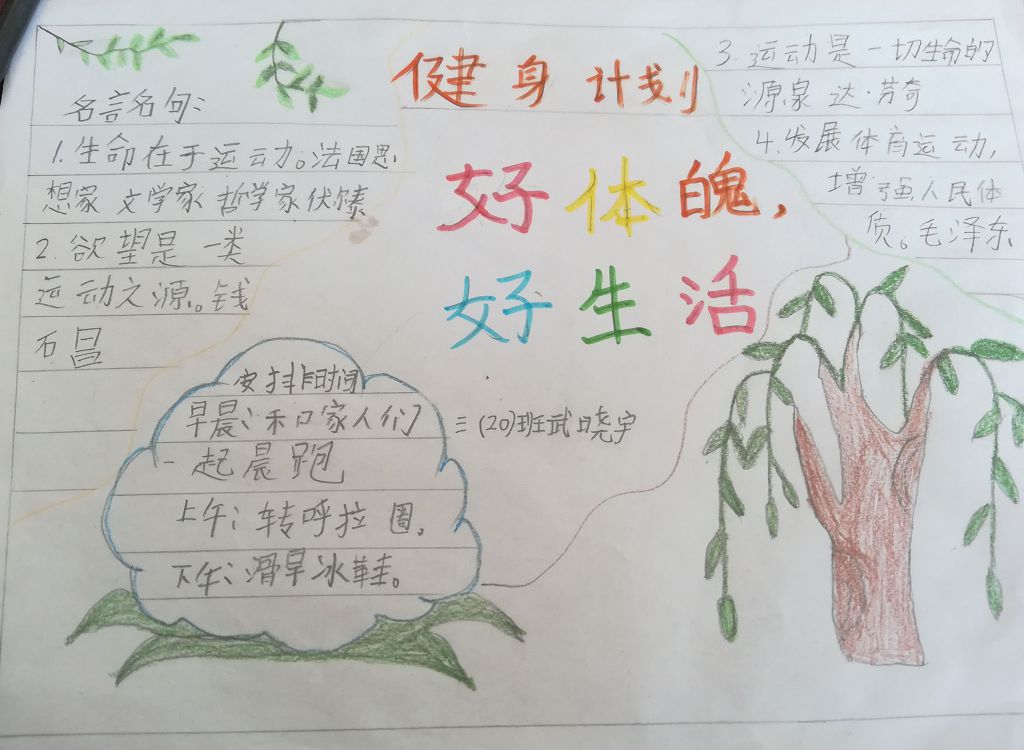 健身计划
好体魄，
好生活
名言名句：
1.生命在于运动。法国思
想家文学家哲学家伏馈
2.欲望是一类
运动之源。钱
石昌
3.运动是一切生命的
源泉 达·芬奇
4.发展体育运动，
增强人民体
质。毛泽东
安排时间
早晨：和家人们
一起晨跑
上午：转呼拉圈。
下午：滑旱冰鞋。
三(20)班武晓宇